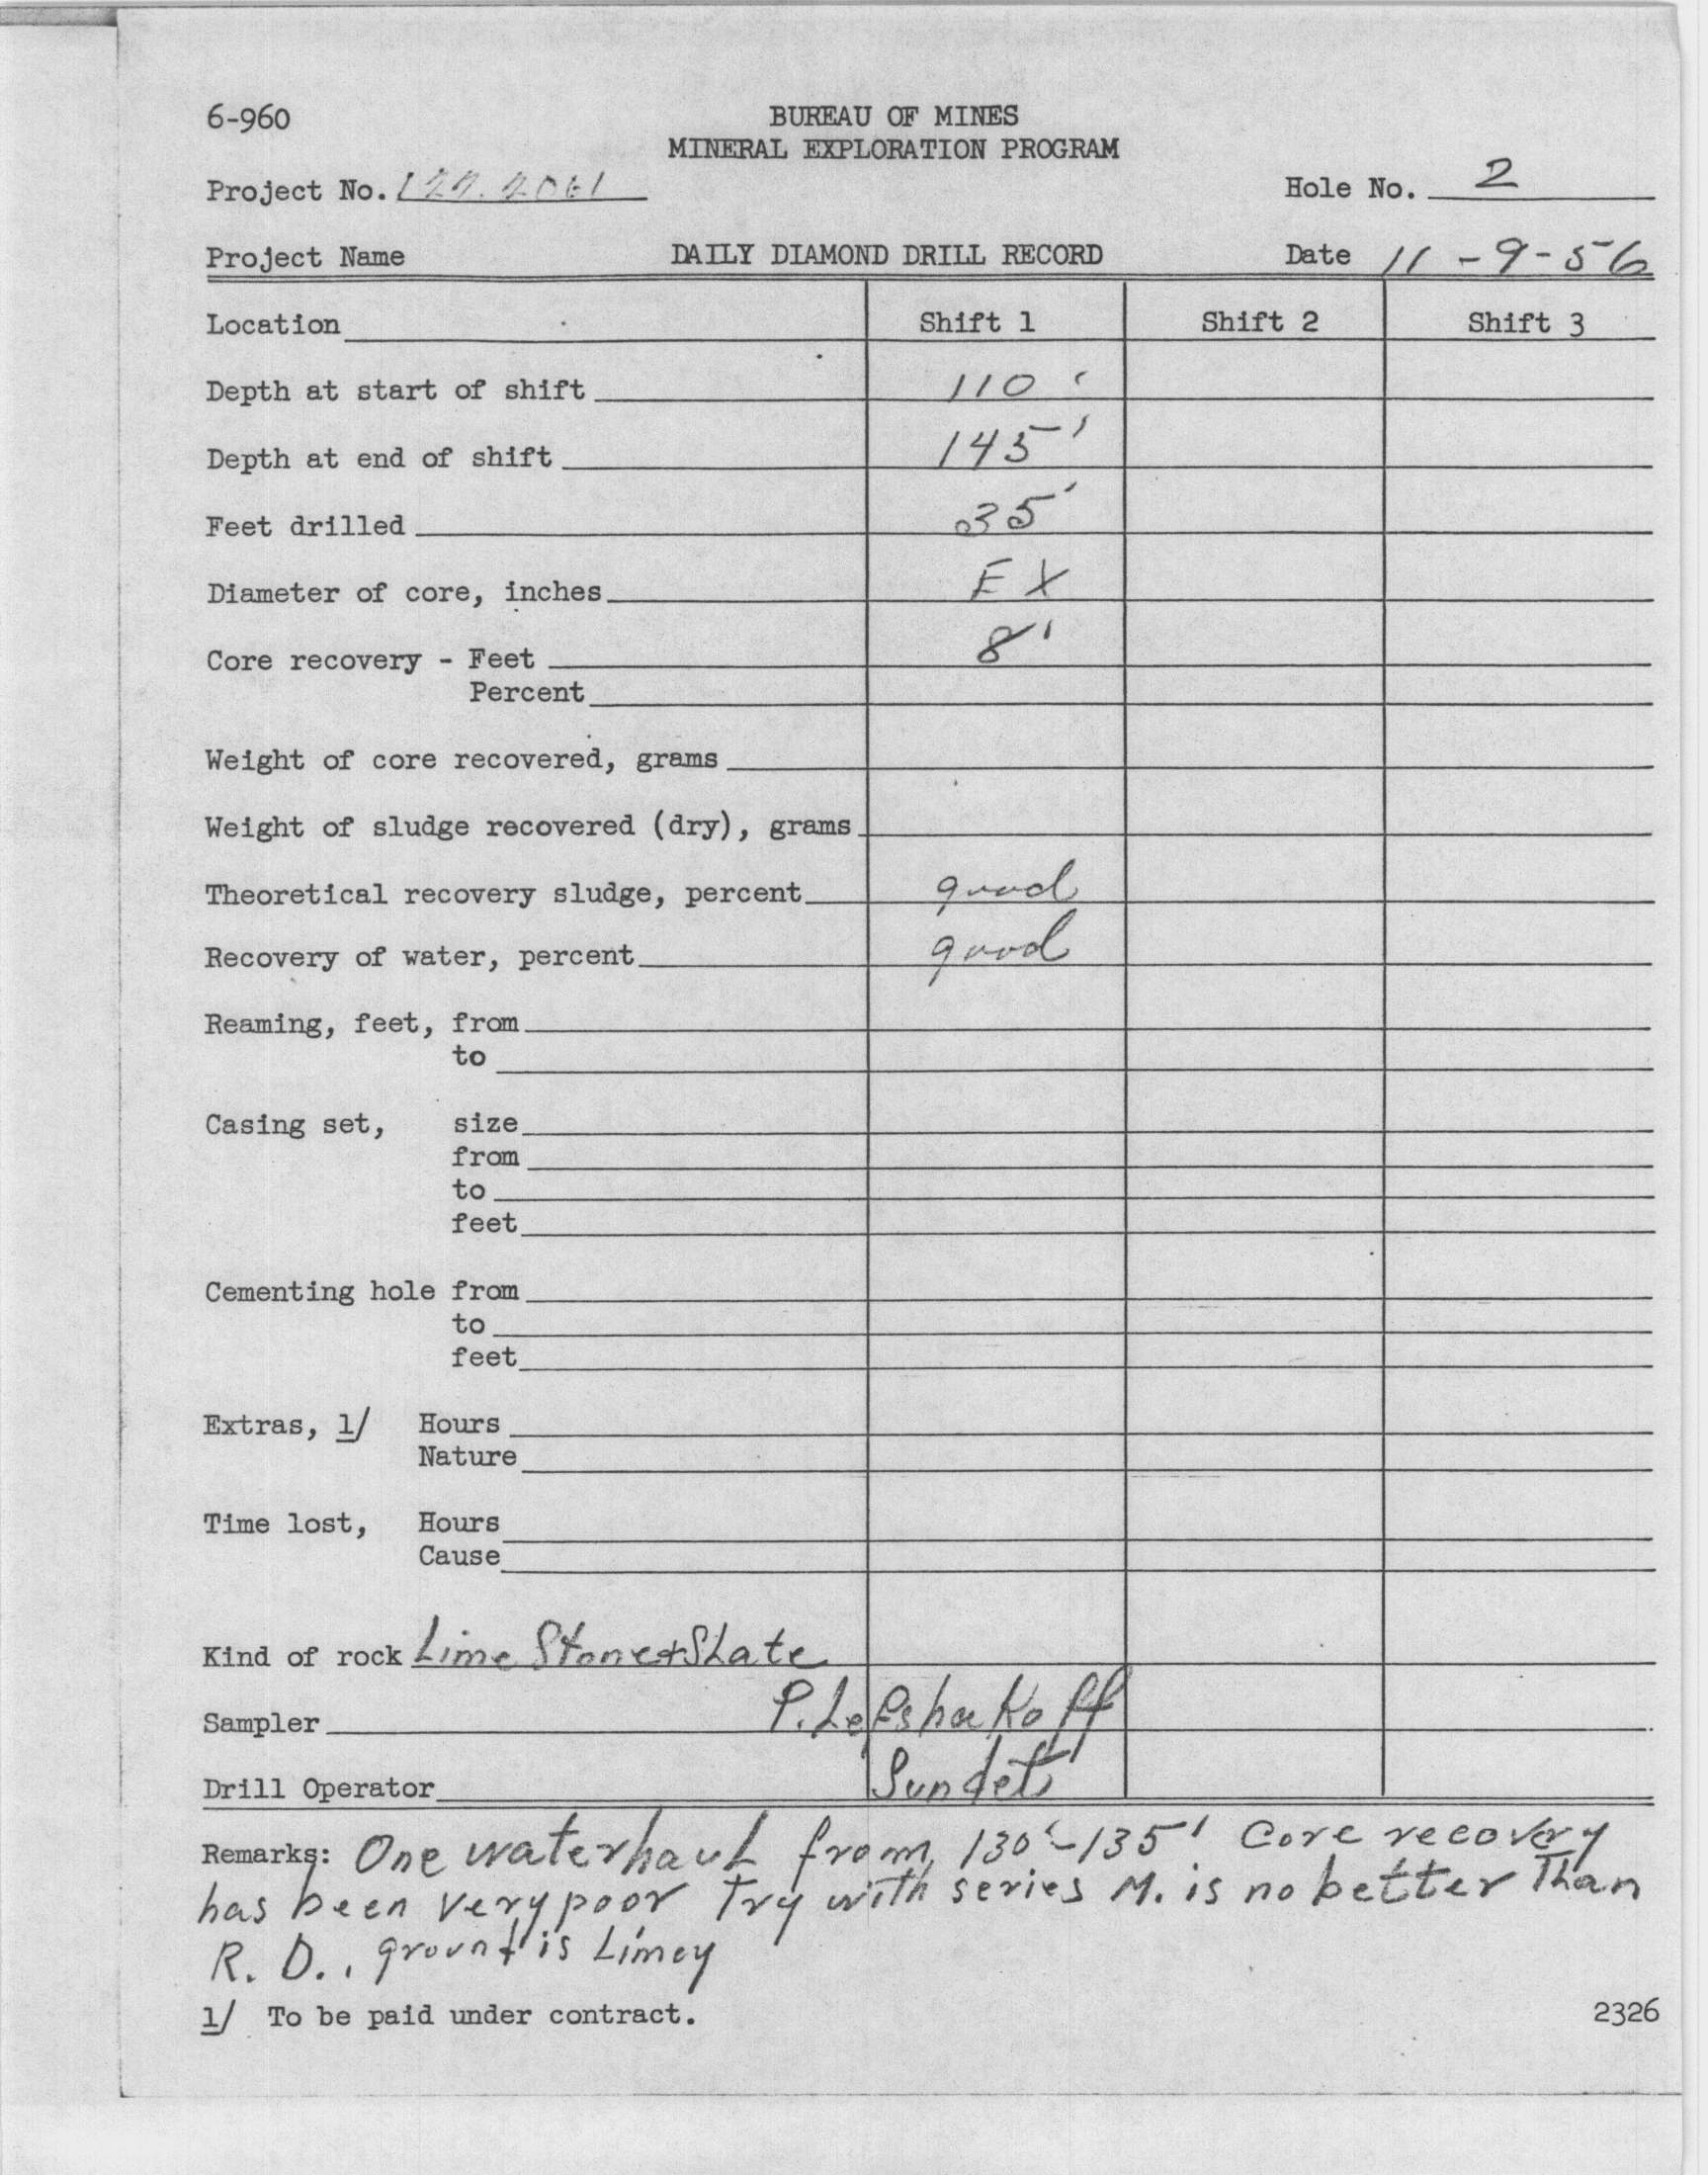 6-960
BUREAU OF MINES
MINERAL EXPLORATION PROGRAM
Project No.
Hole No. 2
Project Name DAILY DIAMOND DRILL RECORD Date 11-9-56
Location Shift 1 Shift 2 Shift 3
Depth at start of shift 110'
Depth at end of shift 145'
Feet drilled 35'
Diameter of core, inches EX
Core recovery - Feet 8'
Percent
Weight of core recovered, grams
Weight of sludge recovered (dry), grams
Theoretical recovery sludge, percent good
Recovery of water, percent good
Reaming, feet, from
to
Casing set, size
from
to
feet
Cementing hole from
to
feet
Extras, 1/ Hours
Nature
Time lost, Hours
Cause
Kind of rock Lime Stone + Slate
Sampler P.
Drill Operator Sundet
Remarks: One waterhaul from 130'-135' Core recovery
has been very poor Try with series M. is no better Than
R. D., ground is Limey
1/ To be paid under contract.
2326